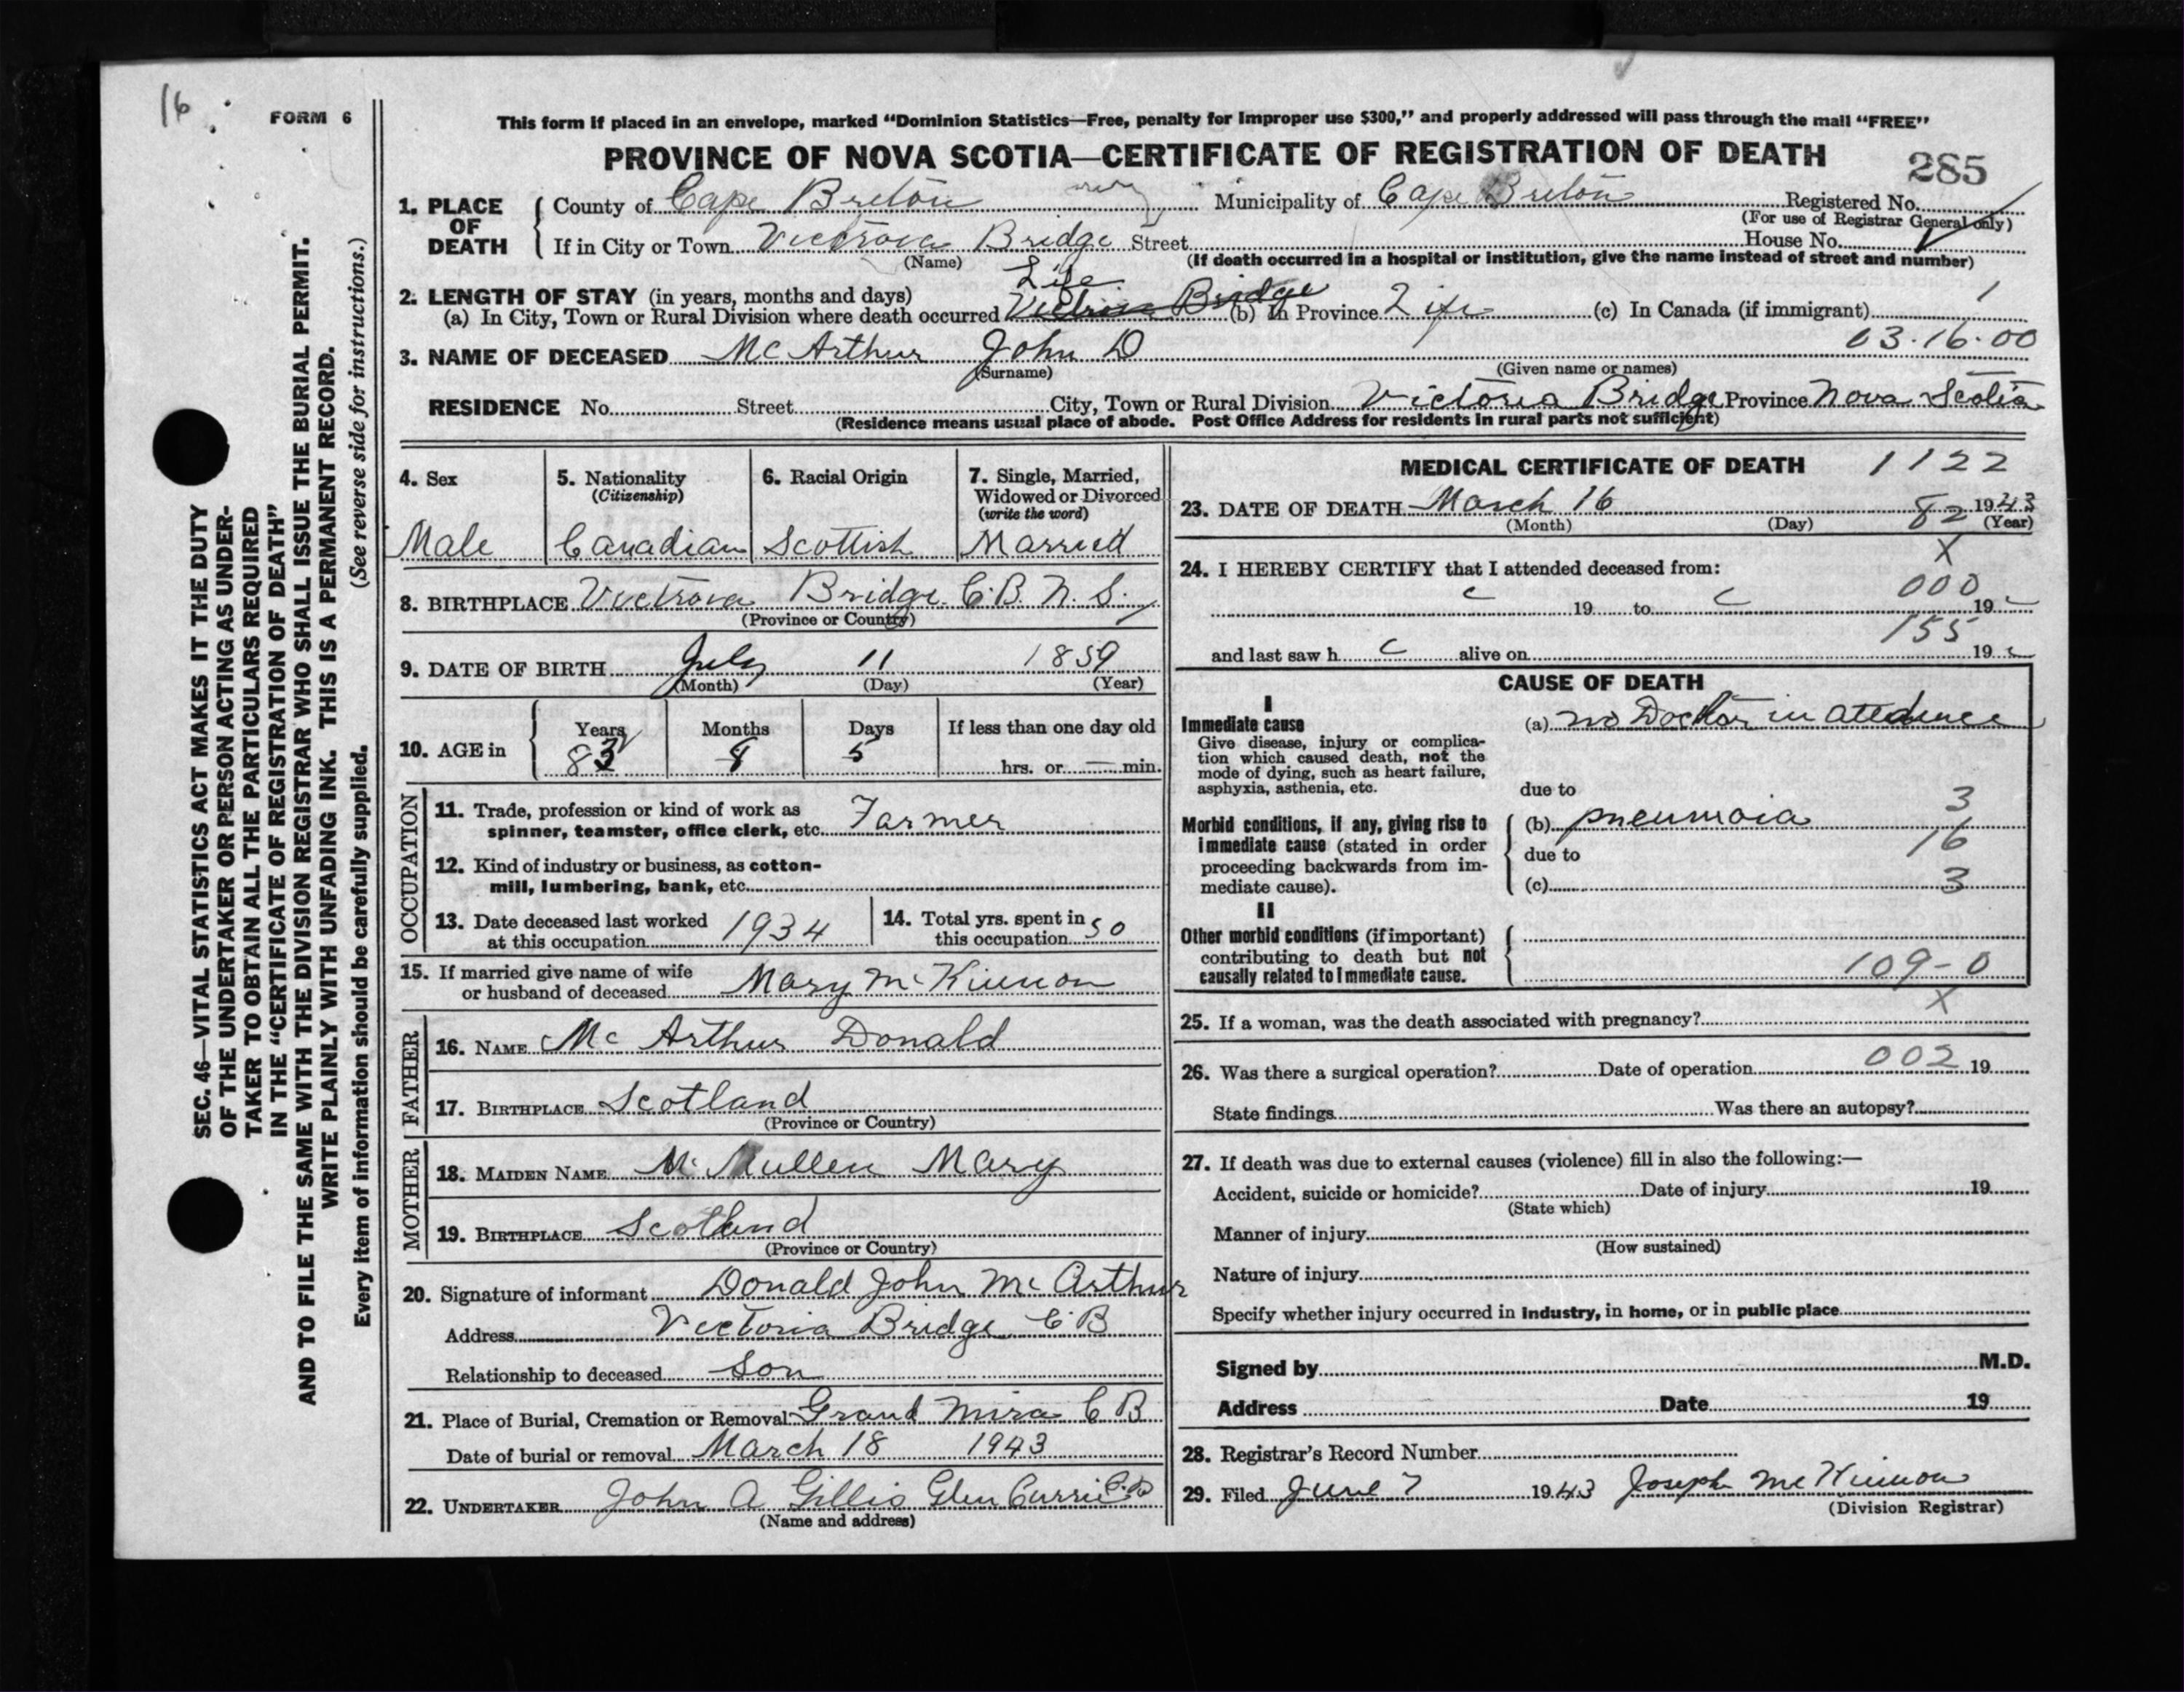 16
FORM 6
This form if placed in an envelope, marked “Dominion Statistics—Free, penalty for improper use $300,” and properly addressed will pass through the mail “FREE”
PROVINCE OF NOVA SCOTIA—CERTIFICATE OF REGISTRATION OF DEATH 285
1. PLACE OF DEATH
County of Cape Breton Municipality of Cape Breton Registered No.
(For use of Registrar General only)
If in City or Town Victroia Bridge Street House No.
(Name) (If death occurred in a hospital or institution, give the name instead of street and number)
Life
2. LENGTH OF STAY (in years, months and days)
(a) In City, Town or Rural Division where death occurred Bridge (b) In Province Life (c) In Canada (if immigrant) 1
03·16·00
3. NAME OF DECEASED Mc Arthur John D
(Surname) (Given name or names)
RESIDENCE No. Street City, Town or Rural Division Victoria Bridge Province Nova Scotia
(Residence means usual place of abode. Post Office Address for residents in rural parts not sufficient)
4. Sex
Male
5. Nationality
(Citizenship)
Canadian
6. Racial Origin
Scottish
7. Single, Married,
Widowed or Divorced
(write the word)
Married
8. BIRTHPLACE Victroia Bridge C.B. N.S.
(Province or Country)
9. DATE OF BIRTH July 11 1859
(Month) (Day) (Year)
10. AGE in
Years Months Days If less than one day old
83 8 5 hrs. or — min.
OCCUPATION
11. Trade, profession or kind of work as
spinner, teamster, office clerk, etc. Farmer
12. Kind of industry or business, as cotton-
mill, lumbering, bank, etc.
13. Date deceased last worked
at this occupation 1934
14. Total yrs. spent in
this occupation 50
15. If married give name of wife
or husband of deceased Mary McKinnon
FATHER
16. NAME Mc Arthur Donald
17. BIRTHPLACE Scotland
(Province or Country)
MOTHER
18. MAIDEN NAME Mc Mullen Mary
19. BIRTHPLACE Scotland
(Province or Country)
20. Signature of informant Donald John Mc Arthur
Address Victoria Bridge C B
Relationship to deceased Son
21. Place of Burial, Cremation or Removal Grand Mira C B
Date of burial or removal March 18 1943
22. UNDERTAKER John A Gillis Glen Currie C.B
(Name and address)
MEDICAL CERTIFICATE OF DEATH 1122
23. DATE OF DEATH March 16 1943
(Month) (Day) (Year)
82
X
24. I HEREBY CERTIFY that I attended deceased from:
000
19 to 19
155
and last saw h alive on 19
CAUSE OF DEATH
I
Immediate cause
Give disease, injury or complica-
tion which caused death, not the
mode of dying, such as heart failure,
asphyxia, asthenia, etc.
(a) no Doctor in attedence
due to
Morbid conditions, if any, giving rise to
immediate cause (stated in order
proceeding backwards from im-
mediate cause).
(b) pneumoia 3
due to 16
(c) 3
II
Other morbid conditions (if important)
contributing to death but not
causally related to immediate cause.
109-0
X
25. If a woman, was the death associated with pregnancy?
26. Was there a surgical operation? Date of operation 002 19
State findings Was there an autopsy?
27. If death was due to external causes (violence) fill in also the following:—
Accident, suicide or homicide? Date of injury 19
(State which)
Manner of injury
(How sustained)
Nature of injury
Specify whether injury occurred in industry, in home, or in public place
Signed by M.D.
Address Date 19
28. Registrar's Record Number
29. Filed June 7 1943 Joseph McKinnon
(Division Registrar)
SEC. 46—VITAL STATISTICS ACT MAKES IT THE DUTY
OF THE UNDERTAKER OR PERSON ACTING AS UNDER-
TAKER TO OBTAIN ALL THE PARTICULARS REQUIRED
IN THE “CERTIFICATE OF REGISTRATION OF DEATH”
AND TO FILE THE SAME WITH THE DIVISION REGISTRAR WHO SHALL ISSUE THE BURIAL PERMIT.
WRITE PLAINLY WITH UNFADING INK. THIS IS A PERMANENT RECORD.
Every item of information should be carefully supplied. (See reverse side for instructions.)